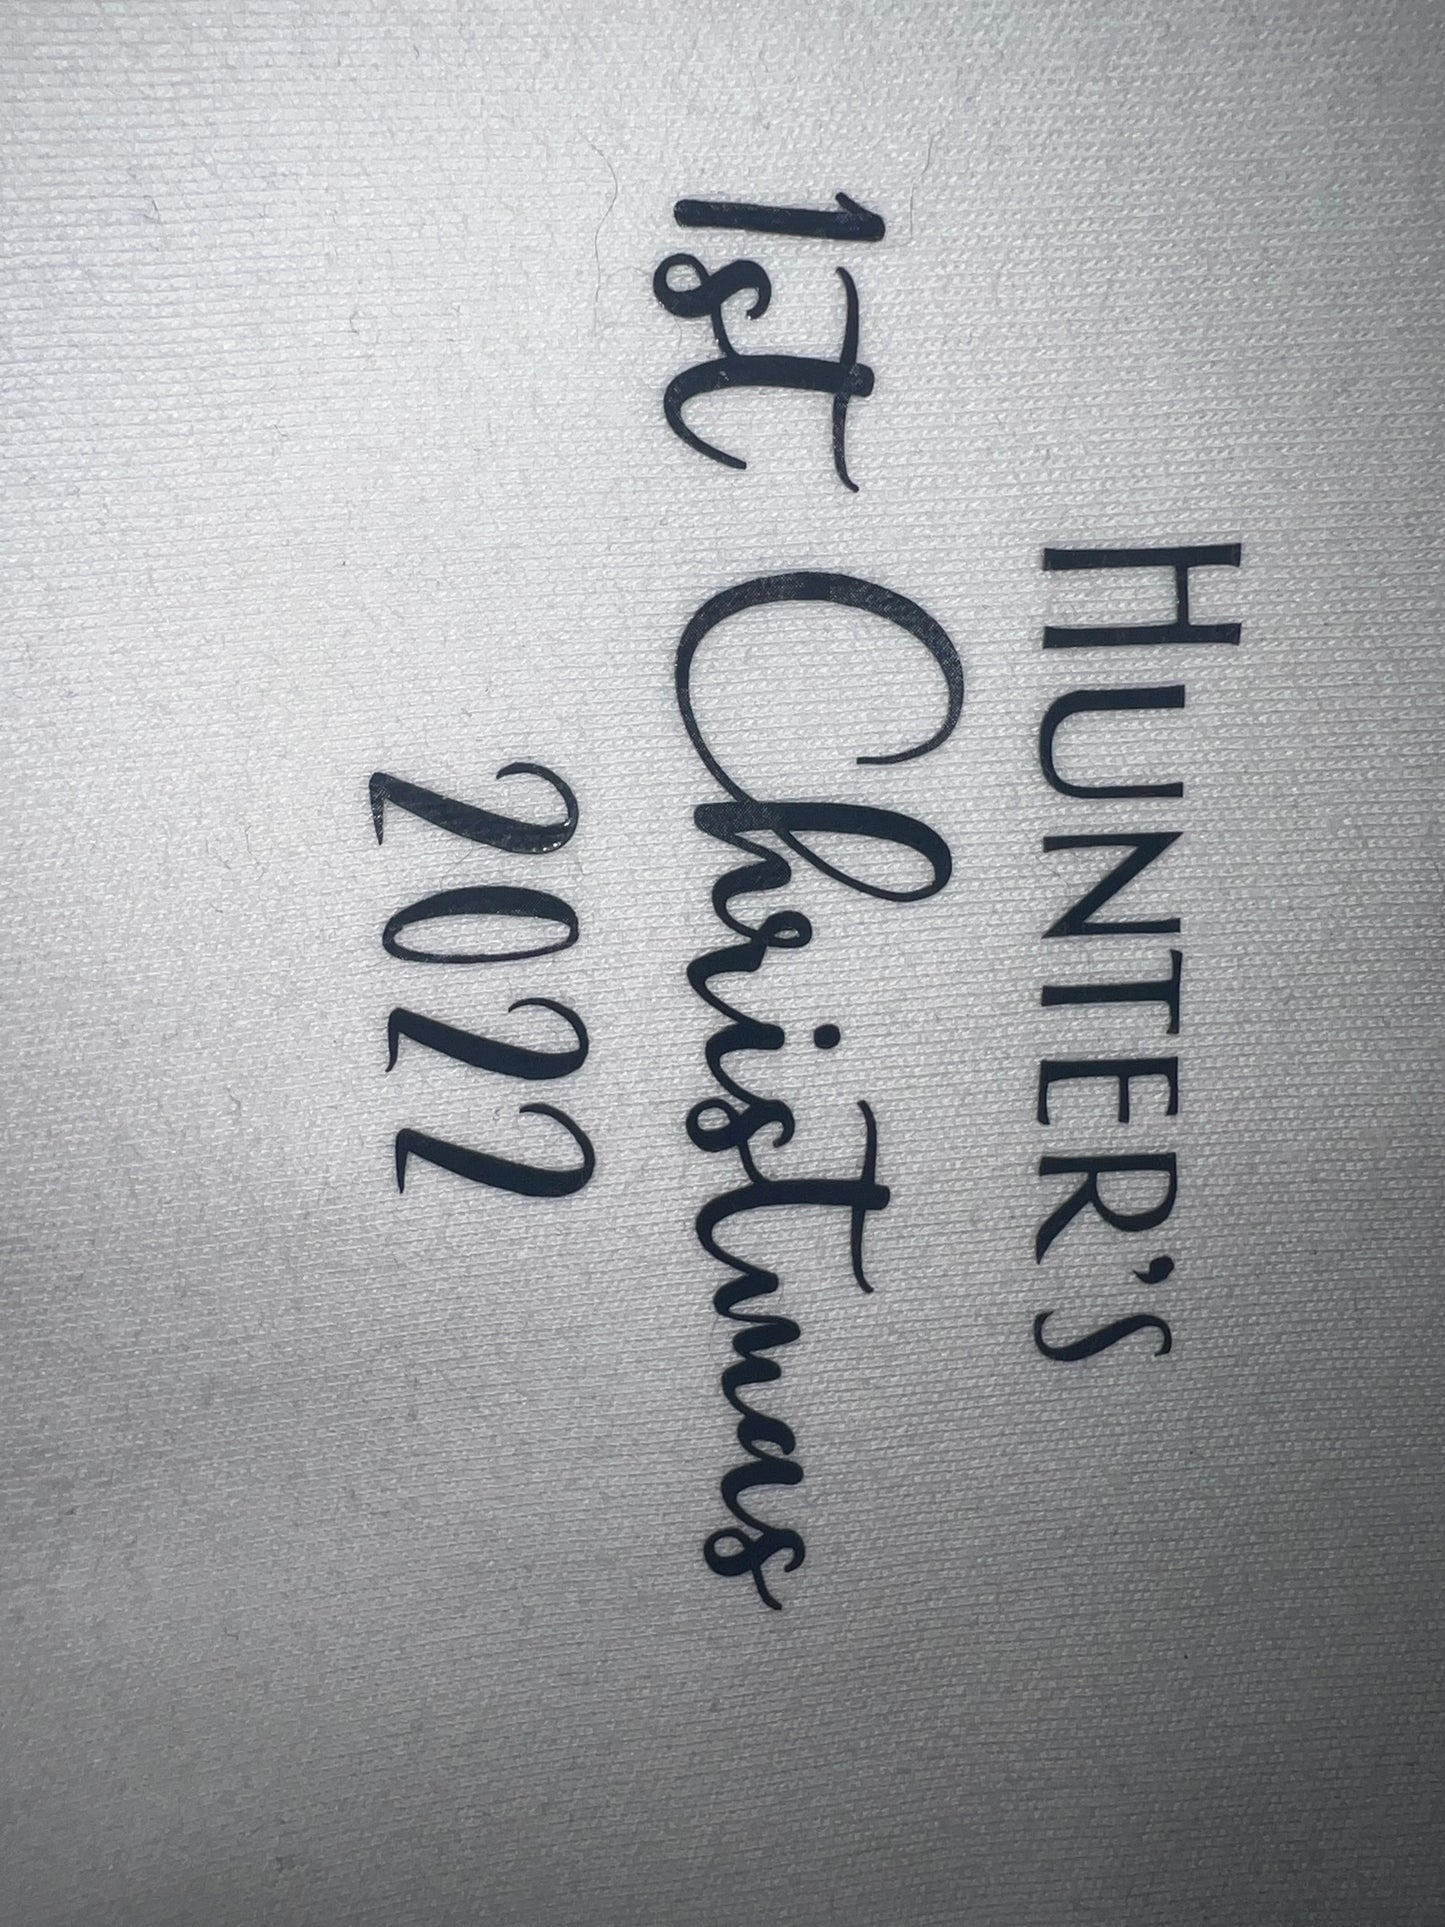 HUNTER'S
1st Christmas
2022